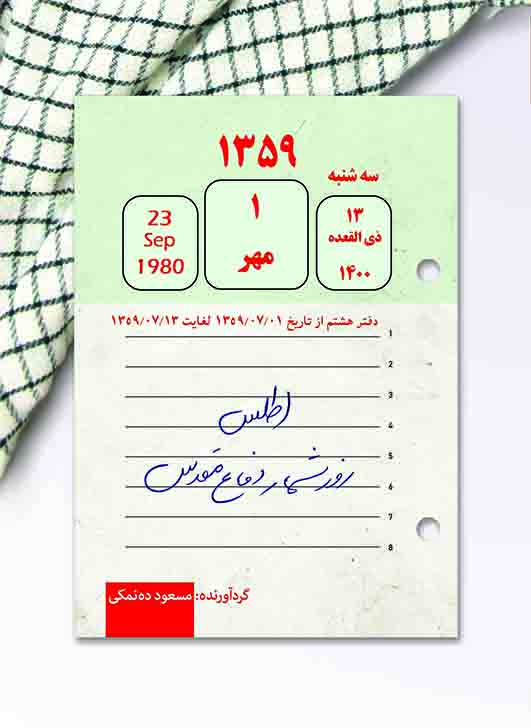 ۱۳۵۹
سه شنبه
۱۳
ذی القعده
۱۴۰۰
۱
مهر
23
Sep
1980
دفتر هشتم از تاریخ ۱۳۵۹/۰۷/۰۱ لغایت ۱۳۵۹/۰۷/۱۳
1
2
3
4
5
6
7
8
اطلس
روزشمار دفاع مقدس
گردآورنده: مسعود ده‌نمکی